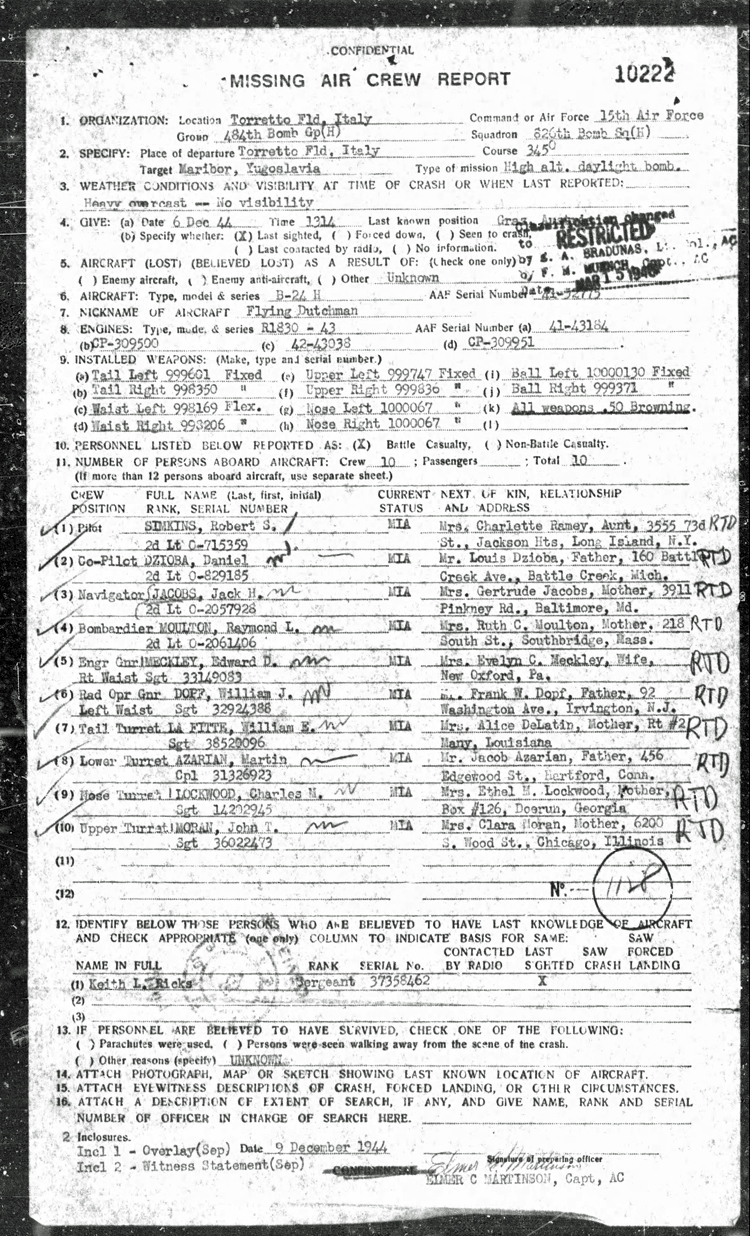 CONFIDENTIAL
MISSING AIR CREW REPORT 10222
1. ORGANIZATION: Location Torretto Fld, Italy Command or Air Force 15th Air Force
Group 484th Bomb Gp(H) Squadron 826th Bomb Sq(H)
2. SPECIFY: Place of departure Torretto Fld, Italy Course 345°
Target Maribor, Yugoslavia Type of mission High alt. daylight bomb.
3. WEATHER CONDITIONS AND VISIBILITY AT TIME OF CRASH OR WHEN LAST REPORTED:
Heavy overcast -- No visibility
4. GIVE: (a) Date 6 Dec 44 Time 1314 Last known position Graz,
(b) Specify whether: (X) Last sighted, ( ) Forced down, ( ) Seen to crash,
( ) Last contacted by radio, ( ) No information.
Classification changed
to RESTRICTED
by E. A. BRADUNAS, Lt. Col., AC
by F. M. Capt., AC
Date MAR 15 1946
5. AIRCRAFT (LOST) (BELIEVED LOST) AS A RESULT OF: (Check one only)
( ) Enemy aircraft, ( ) Enemy anti-aircraft, ( ) Other Unknown
6. AIRCRAFT: Type, model & series B-24 H AAF Serial Number
7. NICKNAME OF AIRCRAFT Flying Dutchman
8. ENGINES: Type, mode, & series R1830 - 43 AAF Serial Number (a) 41-43184
(b) CP-309500 (c) 42-43038 (d) CP-309951
9. INSTALLED WEAPONS: (Make, type and serial number.)
(a) Tail Left 999601 Fixed (e) Upper Left 999747 Fixed (i) Ball Left 10000130 Fixed
(b) Tail Right 998350 " (f) Upper Right 999836 " (j) Ball Right 999371 "
(c) Waist Left 998169 Flex. (g) Nose Left 1000067 " (k) All weapons .50 Browning.
(d) Waist Right 998206 " (h) Nose Right 1000067 " (l)
10. PERSONNEL LISTED BELOW REPORTED AS: (X) Battle Casualty, ( ) Non-Battle Casualty.
11. NUMBER OF PERSONS ABOARD AIRCRAFT: Crew 10 ; Passengers ; Total 10 .
(If more than 12 persons aboard aircraft, use separate sheet.)
CREW FULL NAME (Last, first, initial) CURRENT NEXT OF KIN, RELATIONSHIP
POSITION RANK, SERIAL NUMBER STATUS AND ADDRESS
(1) Pilot SIMKINS, Robert S. MIA Mrs. Charlette Ramey, Aunt, 3555 73d RTD
2d Lt O-715359 St., Jackson Hts, Long Island, N.Y.
(2) Co-Pilot DZIOBA, Daniel MIA Mr. Louis Dzioba, Father, 160 Battl RTD
2d Lt O-829185 Creek Ave., Battle Creek, Mich.
(3) Navigator JACOBS, Jack H. MIA Mrs. Gertrude Jacobs, Mother, 3911 RTD
2d Lt O-2057928 Pinkney Rd., Baltimore, Md.
(4) Bombardier MOULTON, Raymond L. MIA Mrs. Ruth C. Moulton, Mother, 218 RTD
2d Lt O-2061406 South St., Southbridge, Mass.
(5) Engr Gnr MECKLEY, Edward D. MIA Mrs. Evelyn C. Meckley, Wife, RTD
Rt Waist Sgt 33149083 New Oxford, Pa.
(6) Rad Opr Gnr DOPF, William J. MIA Frank W. Dopf, Father, 92 RTD
Left Waist Sgt 32924388 Washington Ave., Irvington, N.J.
(7) Tail Turret LA FITTE, William E. MIA Mrs. Alice DeLatin, Mother, Rt #2 RTD
Sgt 38520096 Many, Louisiana
(8) Lower Turret AZARIAN, Martin MIA Mr. Jacob Azarian, Father, 456 RTD
Cpl 31326923 Edgewood St., Hartford, Conn.
(9) Nose Turret LOCKWOOD, Charles M. MIA Mrs. Ethel M. Lockwood, Mother, RTD
Sgt 14202945 Box #126, Doerun, Georgia
(10) Upper Turret MORAN, John T. MIA Mrs. Clara Moran, Mother, 6200 RTD
Sgt 36022473 S. Wood St., Chicago, Illinois
(11)
(12) No. 1128
12. IDENTIFY BELOW THOSE PERSONS WHO ARE BELIEVED TO HAVE LAST KNOWLEDGE OF AIRCRAFT
AND CHECK APPROPRIATE (one only) COLUMN TO INDICATE BASIS FOR SAME: SAW
CONTACTED LAST SAW FORCED
NAME IN FULL RANK SERIAL No. BY RADIO SIGHTED CRASH LANDING
(1) Keith L. Ricks Sergeant 37358462 X
(2)
(3)
13. IF PERSONNEL ARE BELIEVED TO HAVE SURVIVED, CHECK ONE OF THE FOLLOWING:
( ) Parachutes were used, ( ) Persons were seen walking away from the scene of the crash.
( ) Other reasons (specify) UNKNOWN
14. ATTACH PHOTOGRAPH, MAP OR SKETCH SHOWING LAST KNOWN LOCATION OF AIRCRAFT.
15. ATTACH EYEWITNESS DESCRIPTIONS OF CRASH, FORCED LANDING, OR OTHER CIRCUMSTANCES.
16. ATTACH A DESCRIPTION OF EXTENT OF SEARCH, IF ANY, AND GIVE NAME, RANK AND SERIAL
NUMBER OF OFFICER IN CHARGE OF SEARCH HERE.
2 Inclosures.
Incl 1 - Overlay(Sep) Date 9 December 1944
Incl 2 - Witness Statement(Sep) CONFIDENTIAL Elmer C Martinson
Signature of preparing officer
ELMER C MARTINSON, Capt, AC